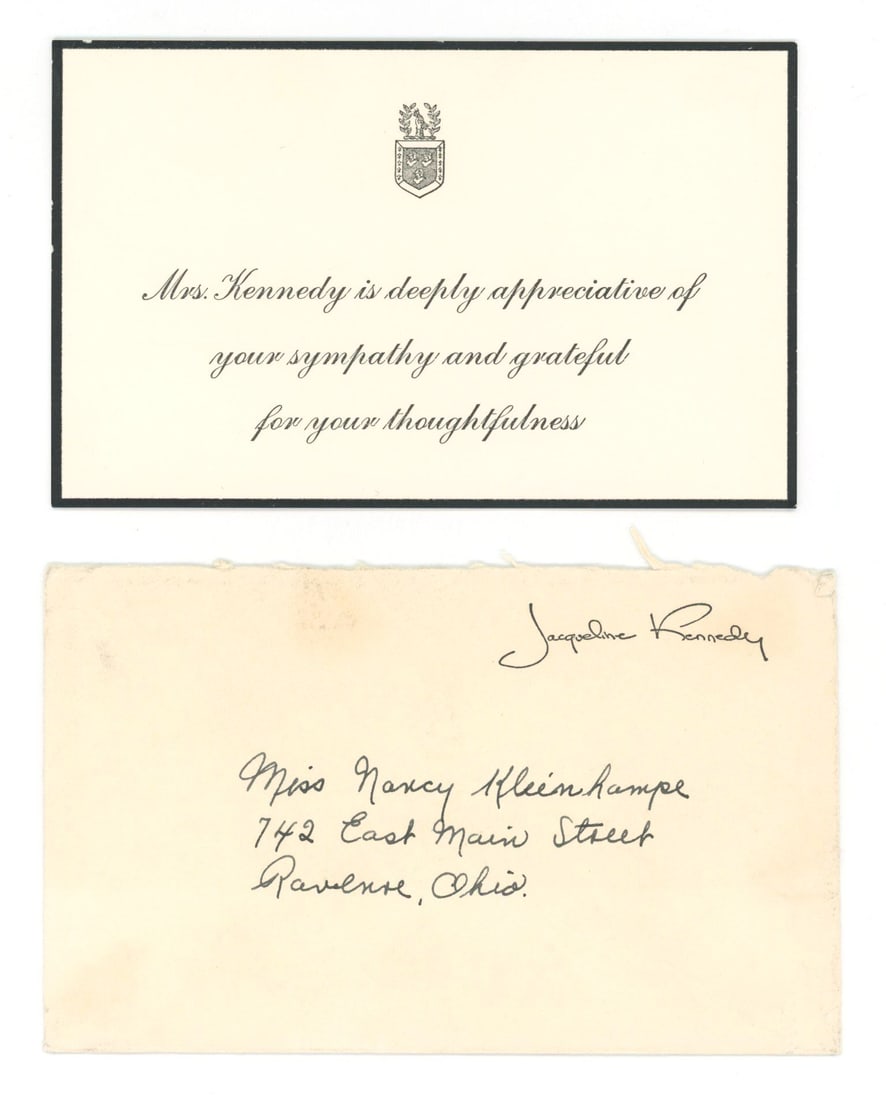 Mrs. Kennedy is deeply appreciative of
your sympathy and grateful
for your thoughtfulness
Jacqueline Kennedy
Miss Nancy Kleinhampe
742 East Main Street
Ravenne, Ohio.